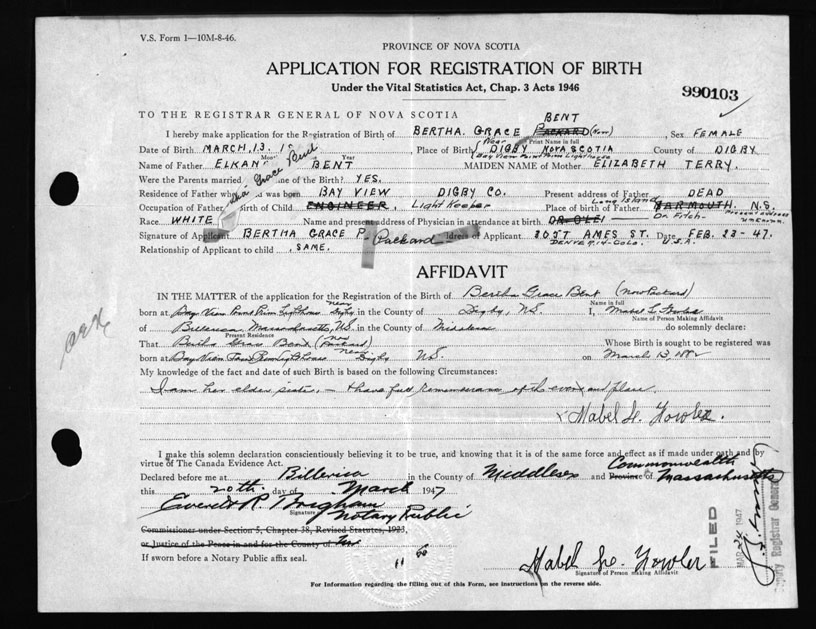 V.S. Form 1—10M-8-46.
PROVINCE OF NOVA SCOTIA
APPLICATION FOR REGISTRATION OF BIRTH
Under the Vital Statistics Act, Chap. 3 Acts 1946
990103
TO THE REGISTRAR GENERAL OF NOVA SCOTIA
BENT
I hereby make application for the Registration of Birth of BERTHA GRACE PACKARD (Now), Sex FEMALE
Print Name in full
Date of Birth MARCH, 13, Place of Birth Near DIGBY NOVA SCOTIA County of DIGBY
Month Year
(Bay View Point Prim Lighthouse
Name of Father ELKAN BENT MAIDEN NAME of Mother ELIZABETH TERRY.
Were the Parents married time of the Birth? YES.
Grace Bent
Residence of Father when child was born BAY VIEW DIGBY CO. Present address of Father DEAD
Long Island
Occupation of Father Birth of Child ENGINEER, Light Keeper Place of birth of Father YARMOUTH. N.S.
Race WHITE Name and present address of Physician in attendance at birth Dr Fitch- present address unknown
Signature of Applicant BERTHA GRACE P. Packard Address of Applicant 2057 AMES ST. Date FEB. 23-47.
DENVER, 14-COLO. U.S.A.
Relationship of Applicant to child SAME.
AFFIDAVIT
IN THE MATTER of the application for the Registration of Birth of Bertha Grace Bent (Now Packard)
Name in full
born at Bay View Point Prim Lighthouse near Digby in the County of Digby, N.S. I, Mabel L. Fowler
Name of Person Making Affidavit
of Billerica Massachusetts, U.S. in the County of Middlesex do solemnly declare:
Present Residence
That Bertha Grace Bent (now Packard) Whose Birth is sought to be registered was
born at Bay View Point Prim Lighthouse near Digby N.S. on March 13, 1882
My knowledge of the fact and date of such Birth is based on the following Circumstances:
I am her elder sister, - I have full remembrance of the event and place.
Mabel L. Fowler.
I make this solemn declaration conscientiously believing it to be true, and knowing that it is of the same force and effect as if made under oath and by
virtue of The Canada Evidence Act.
Commonwealth
Declared before me at Billerica in the County of Middlesex and Province of Massachusetts
this 20th day of March 1947
Everett R. Brigham
Signature Notary Public
Commissioner under Section 5, Chapter 38, Revised Statutes, 1923,
or Justice of the Peace in and for the County of
If sworn before a Notary Public affix seal.
Mabel L. Fowler
Signature of Person making Affidavit
For Information regarding the filling out of this Form, see instructions on the reverse side.
FILED
MAR 24 1947
Deputy Registrar General